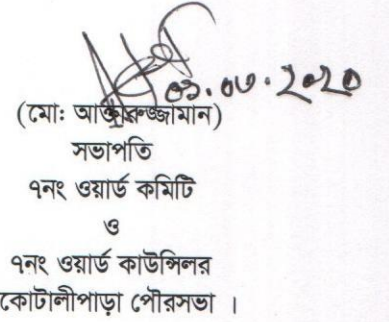 ০১.০৩.২০২০
(মো: আক্তারুজ্জামান)
সভাপতি
৭নং ওয়ার্ড কমিটি
ও
৭নং ওয়ার্ড কাউন্সিলর
কোটালীপাড়া পৌরসভা ।